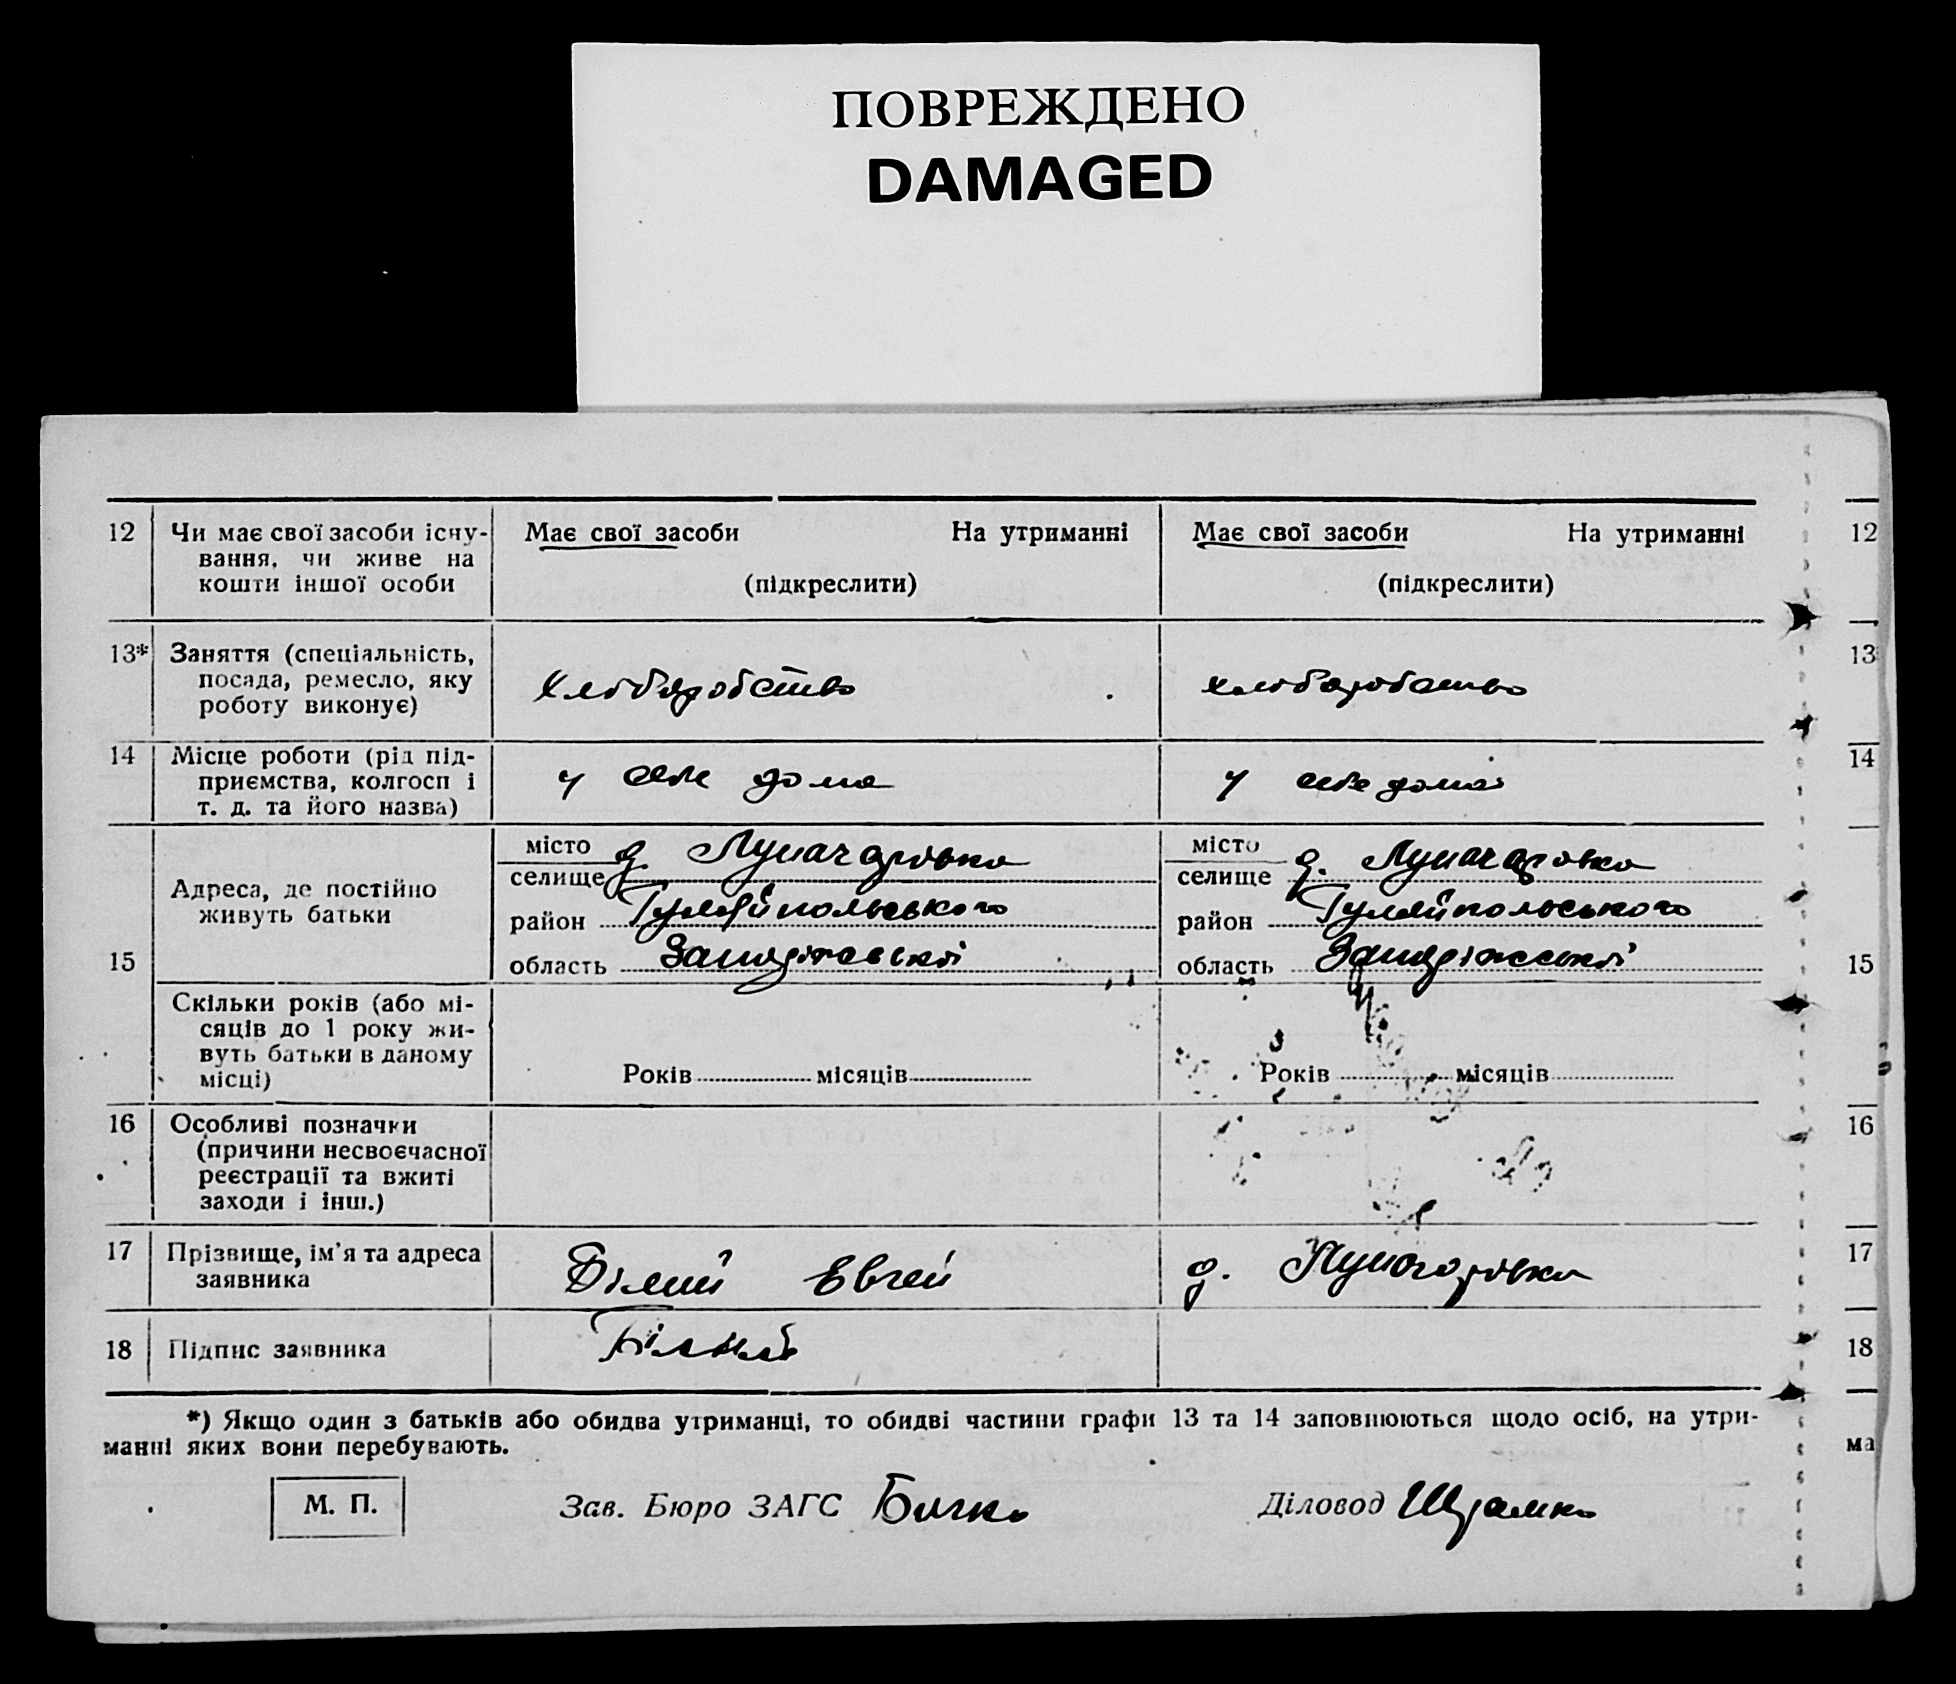 ПОВРЕЖДЕНО
DAMAGED
12 Чи має свої засоби існу-
вання, чи живе на
кошти іншої особи
Має свої засоби На утриманні
(підкреслити)
Має свої засоби На утриманні
(підкреслити)
12
13* Заняття (спеціальність,
посада, ремесло, яку
роботу виконує)
хлібаробство
хлібаробство
13
14 Місце роботи (рід під-
приємства, колгосп і
т. д. та його назва)
у себе дома
у себе дома
14
15
Адреса, де постійно
живуть батьки
місто
селище д. Луначарівка
район Гуляйпольського
область Запоріжської
місто
селище д. Луначарівка
район Гуляйпольського
область Запоріжської
15
Скільки років (або мі-
сяців до 1 року жи-
вуть батьки в даному
місці)
Років місяців
Років місяців
16 Особливі позначки
(причини несвоєчасної
реєстрації та вжиті
заходи і інш.)
16
17 Прізвище, ім'я та адреса
заявника
Білий Евген
д. Луночорівка
17
18 Підпис заявника
Білий
18
*) Якщо один з батьків або обидва утриманці, то обидві частини графи 13 та 14 заповнюються щодо осіб, на утри-
манні яких вони перебувають.
ма
М. П.
Зав. Бюро ЗАГС Бичко
Діловод Шрамко